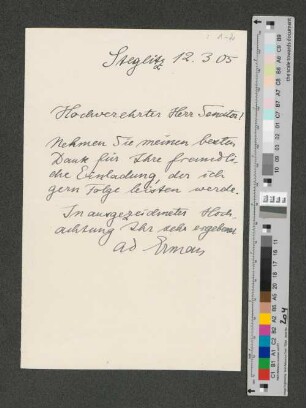 Steglitz 12.3.05
Hochverehrter Herr Senator!
Nehmen Sie meinen besten
Dank für Ihre freundli
che Einladung, der ich
gern Folge leisten werde.
In ausgezeichneter Hoch
achtung Ihr sehr ergebener
Ad Erman